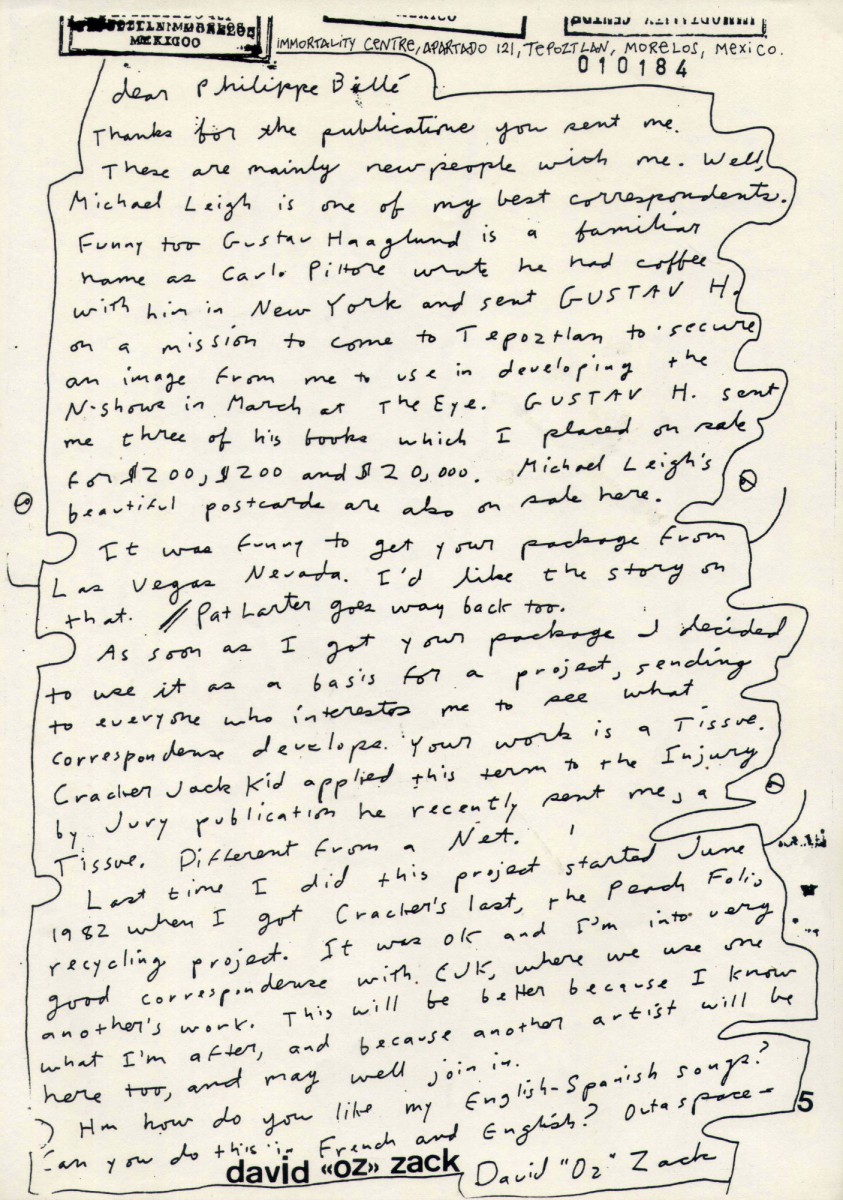 TEPOZTLAN MORELOS
MEXICOO
MEXICO
IMMORTALITY CENTRE
IMMORTALITY CENTRE, APARTADO 121, TEPOZTLAN, MORELOS, MEXICO.
010184
dear Philippe Billé
Thanks for the publicatione you sent me.
These are mainly new people with me. Well,
Michael Leigh is one of my best correspondents.
Funny too Gustav Haaglund is a familiar
name as Carlo Pittore wrote he had coffee
with him in New York and sent GUSTAV H.
on a mission to come to Tepoztlan to secure
an image from me to use in developing the
N-shows in March at The Eye. GUSTAV H. sent
me three of his books which I placed on sale
for $200, $200 and $20,000. Michael Leigh's
beautiful postcards are also on sale here.
It was funny to get your package from
Las Vegas Nevada. I'd like the story on
that. // Pat Larter goes way back too.
As soon as I got your package I decided
to use it as a basis for a project, sending
to everyone who interestes me to see what
correspondense develops. Your work is a Tissue.
Cracker Jack Kid applied this term to the Injury
by Jury publication he recently sent me, a
Tissue. Different from a Net.
Last time I did this project started June
1982 when I got Cracker's last, the Peach Folio
recycling project. It was OK and I'm into very
good correspondense with CJK, where we use one
another's work. This will be better because I know
what I'm after, and because another artist will be
here too, and may well join in.
Hm how do you like my English-Spanish songs?
Can you do this in French and English? Outaspace-
david «oz» zack
David "Oz" Zack
5